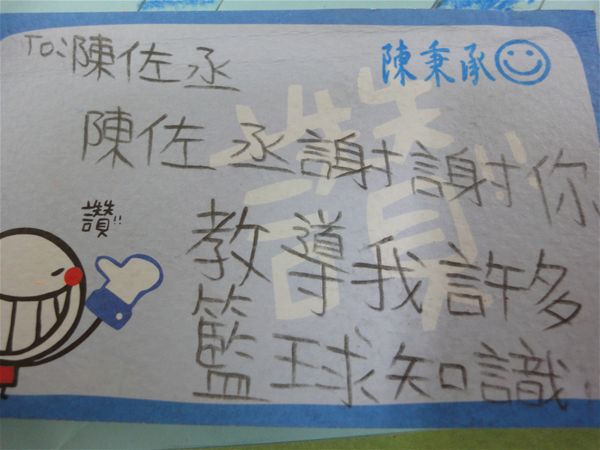 TO:陳佐丞
陳秉承
陳佐丞謝謝你
教導我許多
籃球知識
讚!!
讚!!